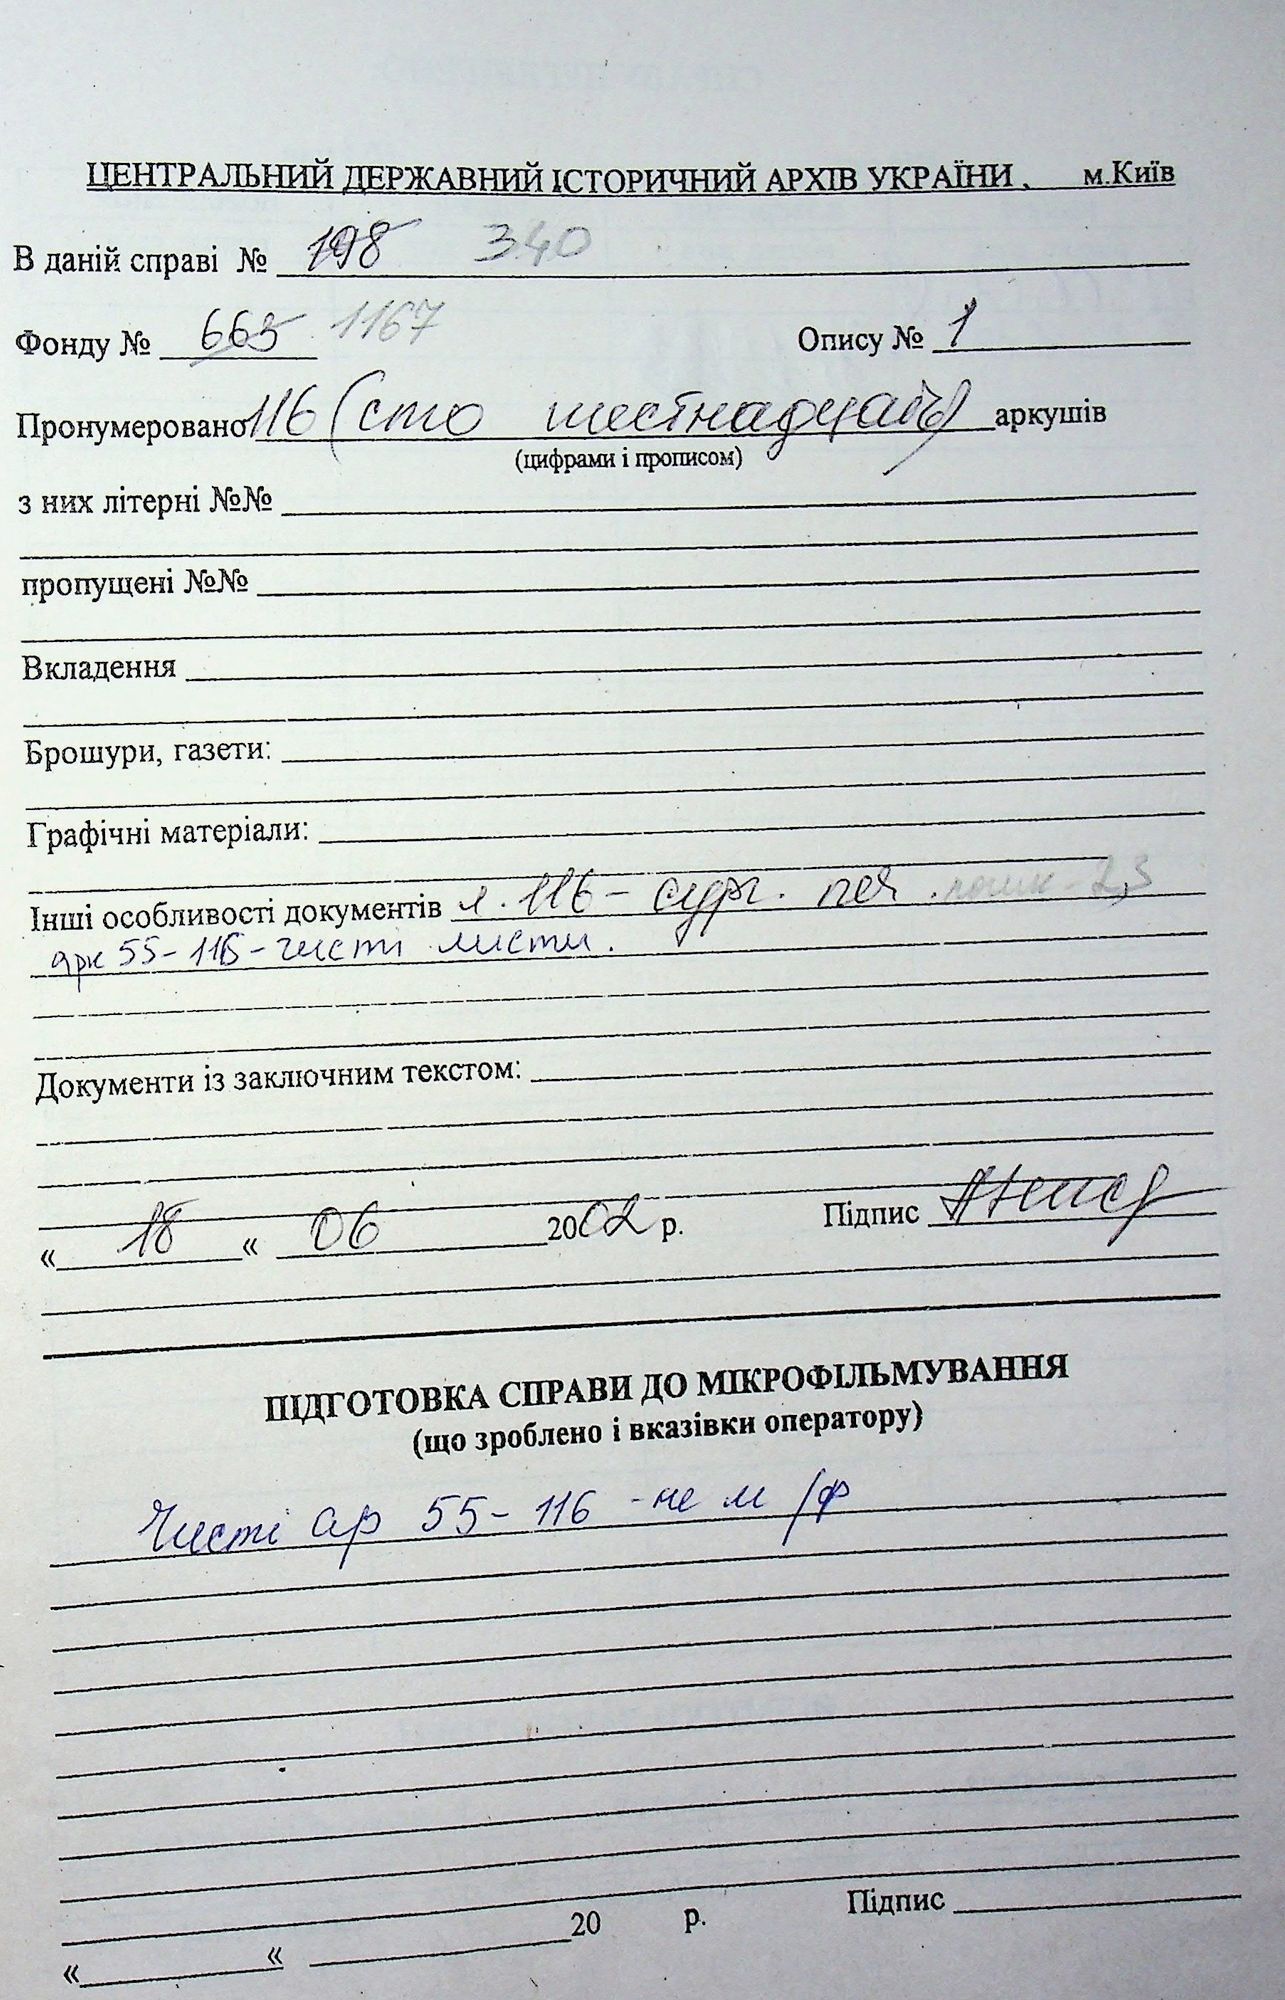 ЦЕНТРАЛЬНИЙ ДЕРЖАВНИЙ ІСТОРИЧНИЙ АРХІВ УКРАЇНИ , м.Київ
В даній справі № 198 340
Фонду № 663 1167 Опису № 1
Пронумеровано 116 (сто шестнадцать) аркушів
(цифрами і прописом)
з них літерні №№
пропущені №№
Вкладення
Брошури, газети:
Графічні матеріали:
Інші особливості документів л. 116 – сург. печ. 2,3
арк 55-116 - чисті листи.
Документи із заключним текстом:
« 18 « 06 2002 р. Підпис
ПІДГОТОВКА СПРАВИ ДО МІКРОФІЛЬМУВАННЯ
(що зроблено і вказівки оператору)
Чисті ар 55-116 - не м/ф
« « 20 р. Підпис